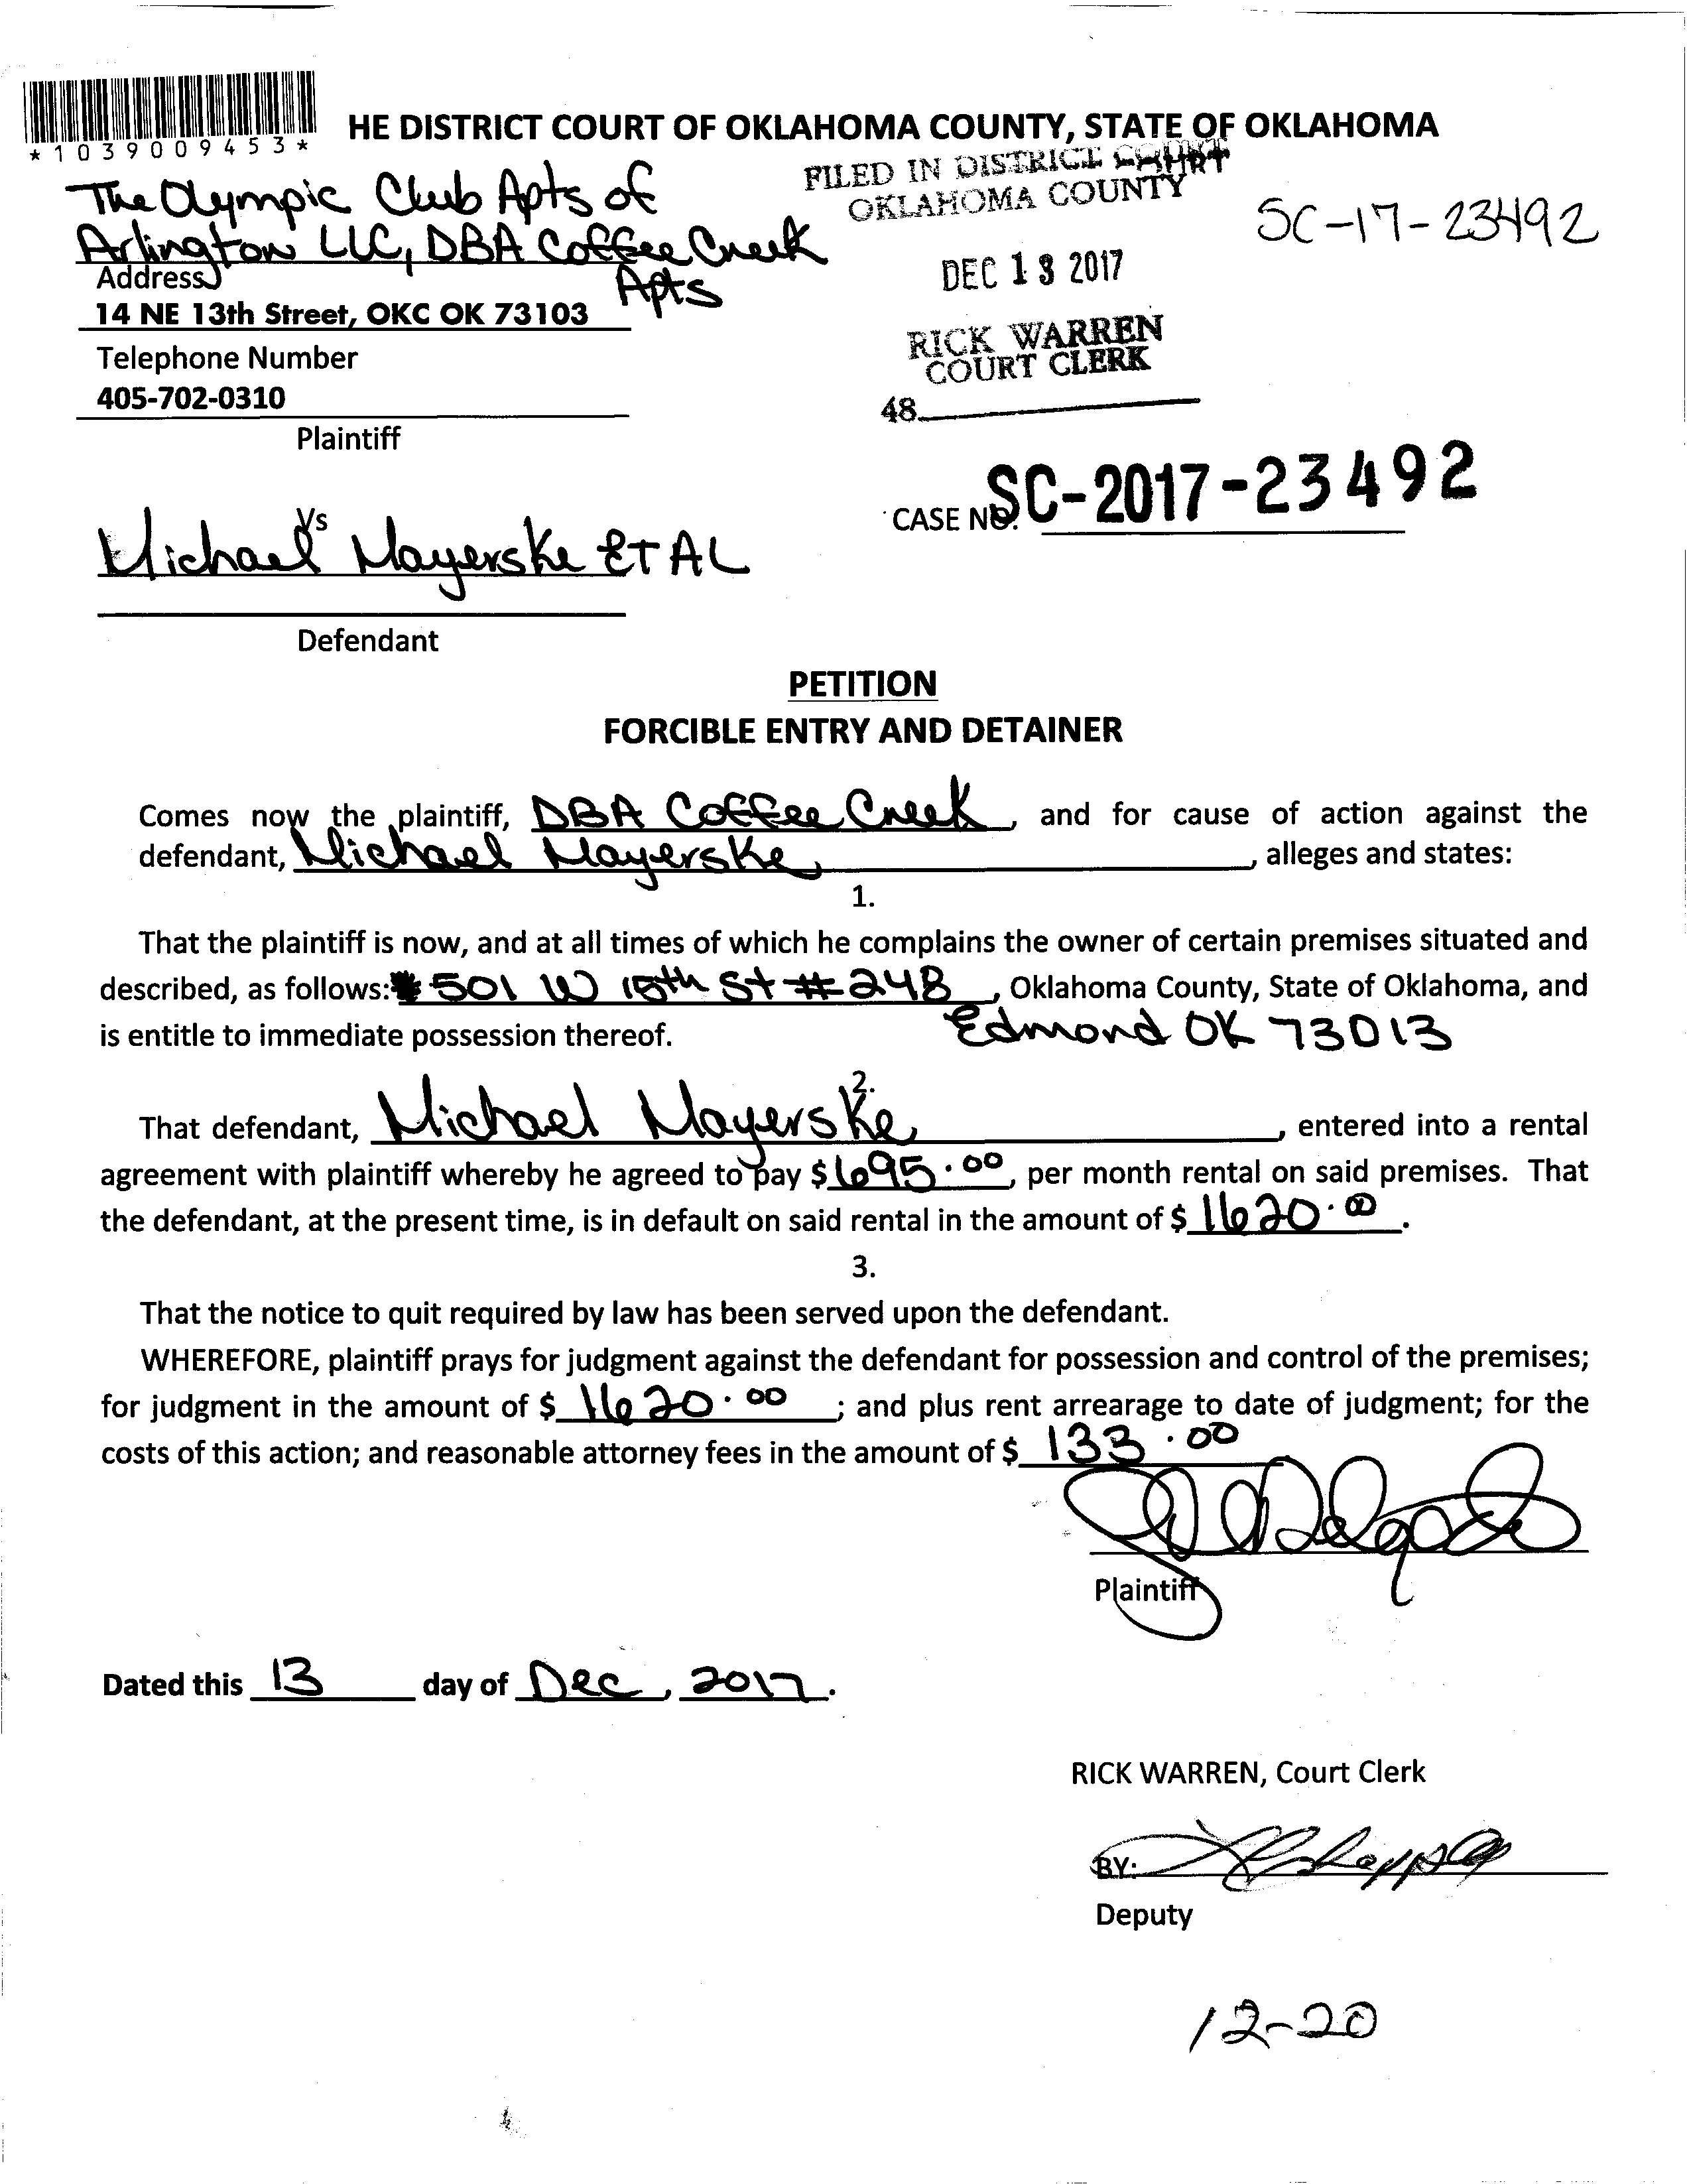 *1039009453*
HE DISTRICT COURT OF OKLAHOMA COUNTY, STATE OF OKLAHOMA
The Olympic Club Apts of
Arlington LLC, DBA Coffee Creek
Apts
FILED IN DISTRICT COURT
OKLAHOMA COUNTY
SC-17-23492
DEC 13 2017
Address
14 NE 13th Street, OKC OK 73103
RICK WARREN
COURT CLERK
Telephone Number
405-702-0310
48
Plaintiff
CASE NO. SC-2017-23492
Vs
Michael Mayerske ET AL
Defendant
PETITION
FORCIBLE ENTRY AND DETAINER
Comes now the plaintiff, DBA Coffee Creek, and for cause of action against the
defendant, Michael Mayerske, alleges and states:
1.
That the plaintiff is now, and at all times of which he complains the owner of certain premises situated and
described, as follows: 501 W 15th St #248, Oklahoma County, State of Oklahoma, and
is entitle to immediate possession thereof. Edmond OK 73013
2.
That defendant, Michael Mayerske, entered into a rental
agreement with plaintiff whereby he agreed to pay $695.00, per month rental on said premises. That
the defendant, at the present time, is in default on said rental in the amount of $1620.00.
3.
That the notice to quit required by law has been served upon the defendant.
WHEREFORE, plaintiff prays for judgment against the defendant for possession and control of the premises;
for judgment in the amount of $1620.00; and plus rent arrearage to date of judgment; for the
costs of this action; and reasonable attorney fees in the amount of $133.00
Plaintiff
Dated this 13 day of Dec, 2017.
RICK WARREN, Court Clerk
BY:
Deputy
12-20